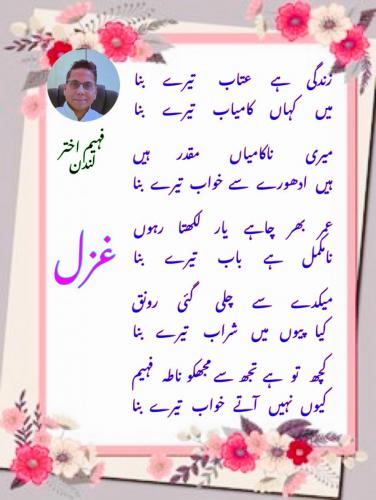 زندگی ہے عتاب تیرے بنا
میں کہاں کامیاب تیرے بنا
میری ناکامیاں مقدر ہیں
ہیں ادھورے سے خواب تیرے بنا
عمر بھر چاہے یار لکھتا رہوں
نامکمل ہے باب تیرے بنا
میکدے سے چلی گئی رونق
کیا پیوں میں شراب تیرے بنا
کچھ تو ہے تجھ سے مجھکو ناطہ فہیم
کیوں نہیں آتے خواب تیرے بنا
فہیم اختر
لندن
غزل